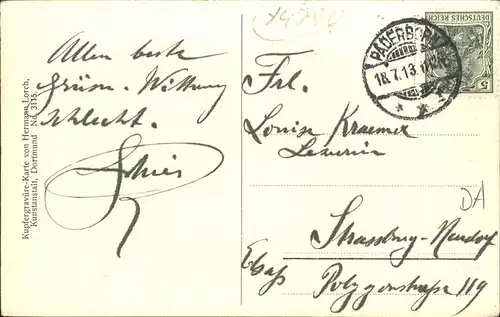 x4800
Allen beste
Grüsse. Wittrung
schlecht.
Frl.
Louise Kraemer
Lehrerin
Strassburg-Neudorf
Elsaß Polygonstraße 119
DA
PADERBORN
18.7.13.
DEUTSCHES REICH
5
Kupfergravüre-Karte von Hermann Lorch,
Kunstanstalt, Dortmund No. 3115.